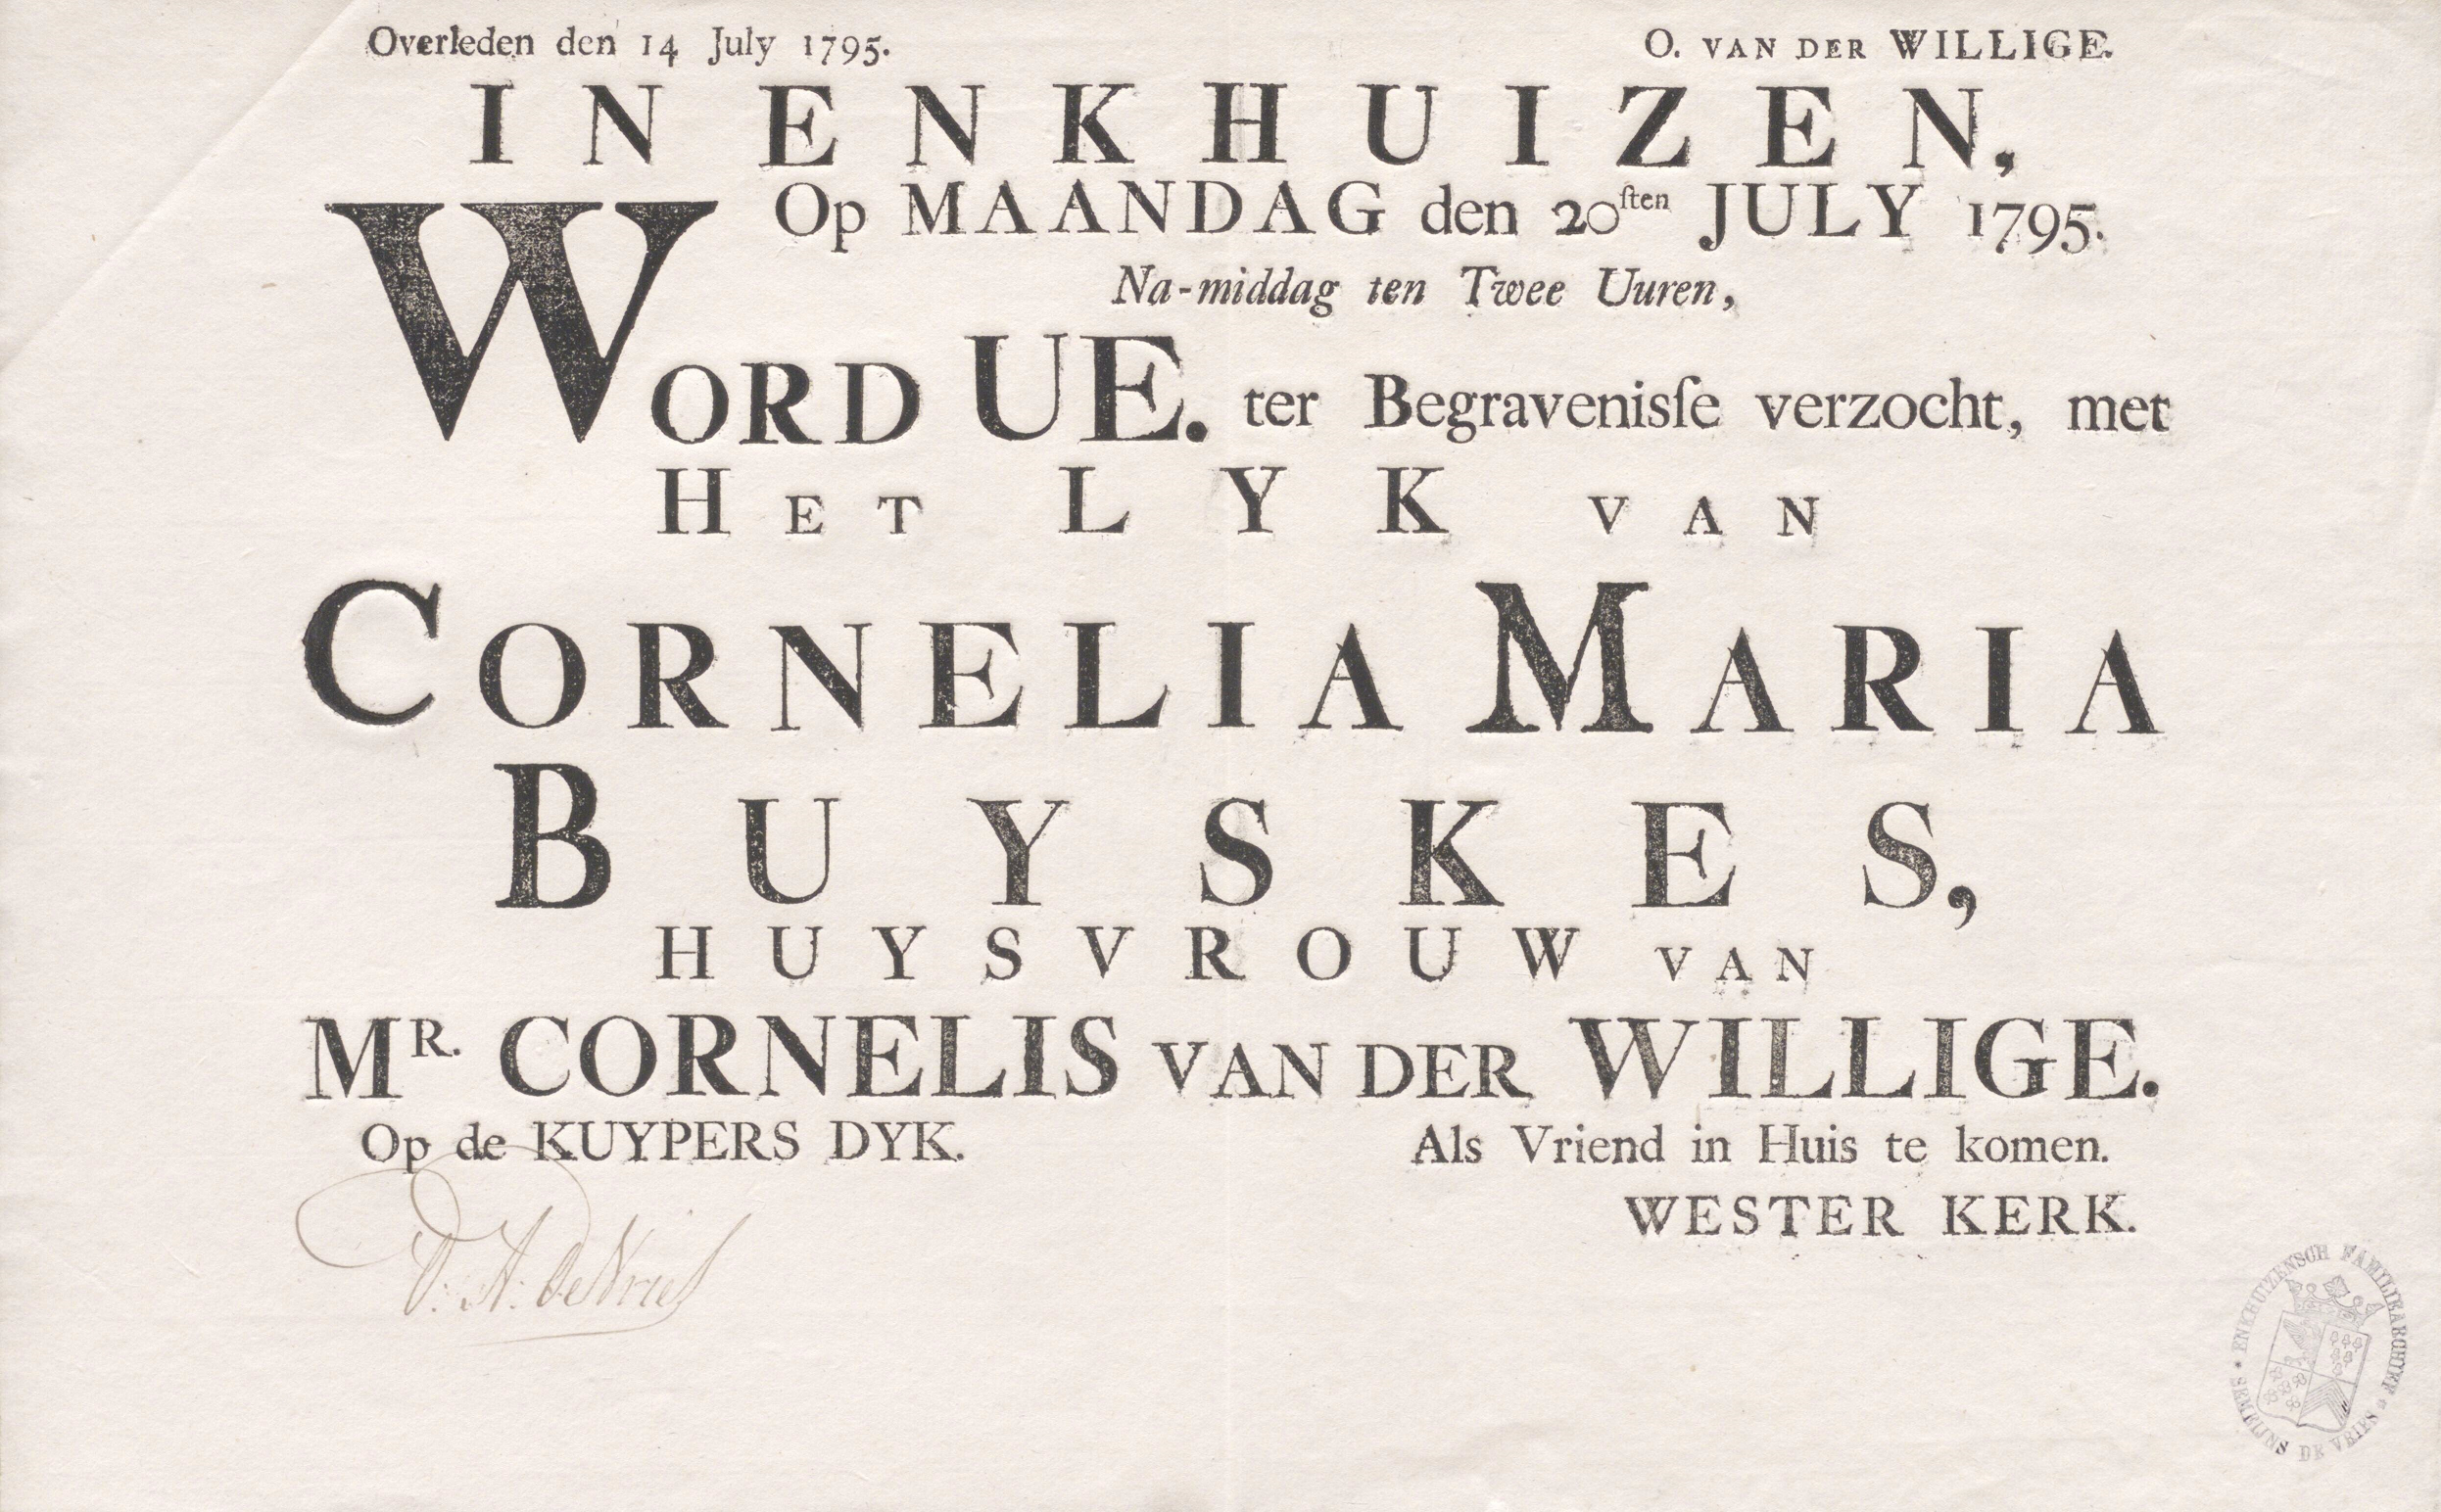 Overleden den 14 July 1795. O. VAN DER WILLIGE.
IN ENKHUIZEN,
Op MAANDAG den 20ſten JULY 1795.
Na-middag ten Twee Uuren,
WORD UE. ter Begraveniſſe verzocht, met
HET LYK VAN
CORNELIA MARIA
BUYSKES,
HUYSVROUW VAN
MR. CORNELIS VAN DER WILLIGE.
Op de KUYPERS DYK. Als Vriend in Huis te komen.
WESTER KERK.
D: A: DeVries
ENKHUIZENSCH FAMILIEARCHIEF
SEMEIJNS DE VRIES